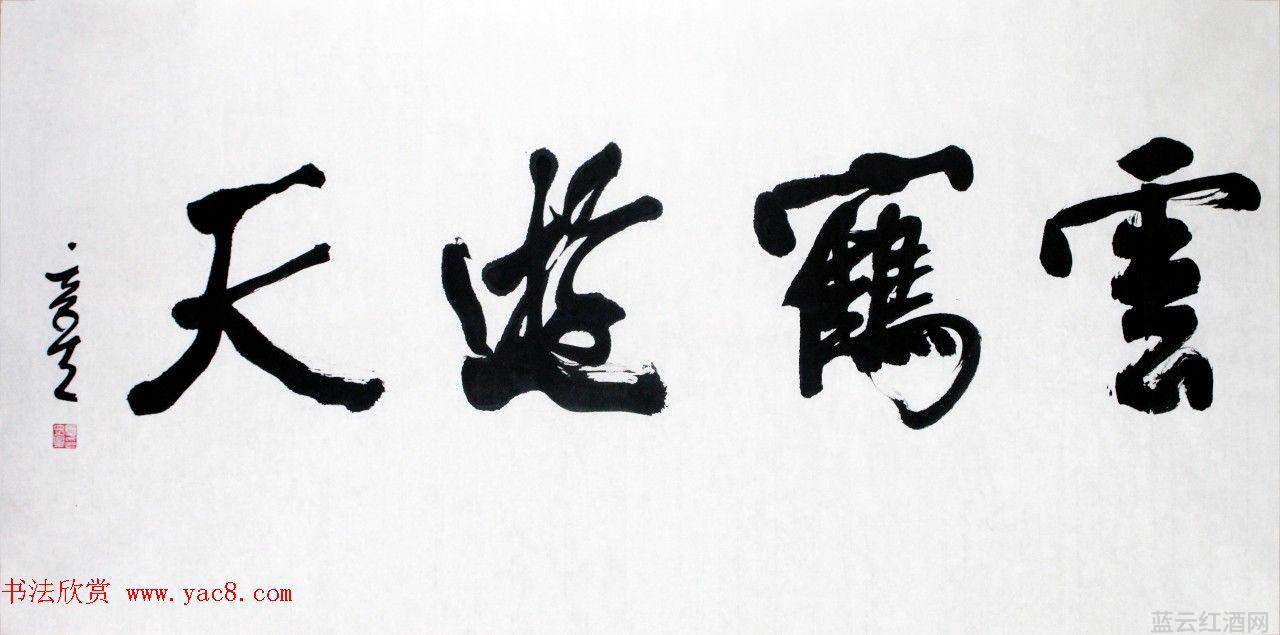 雲鶴遊天
书法欣赏 www.yac8.com
蓝云红酒网